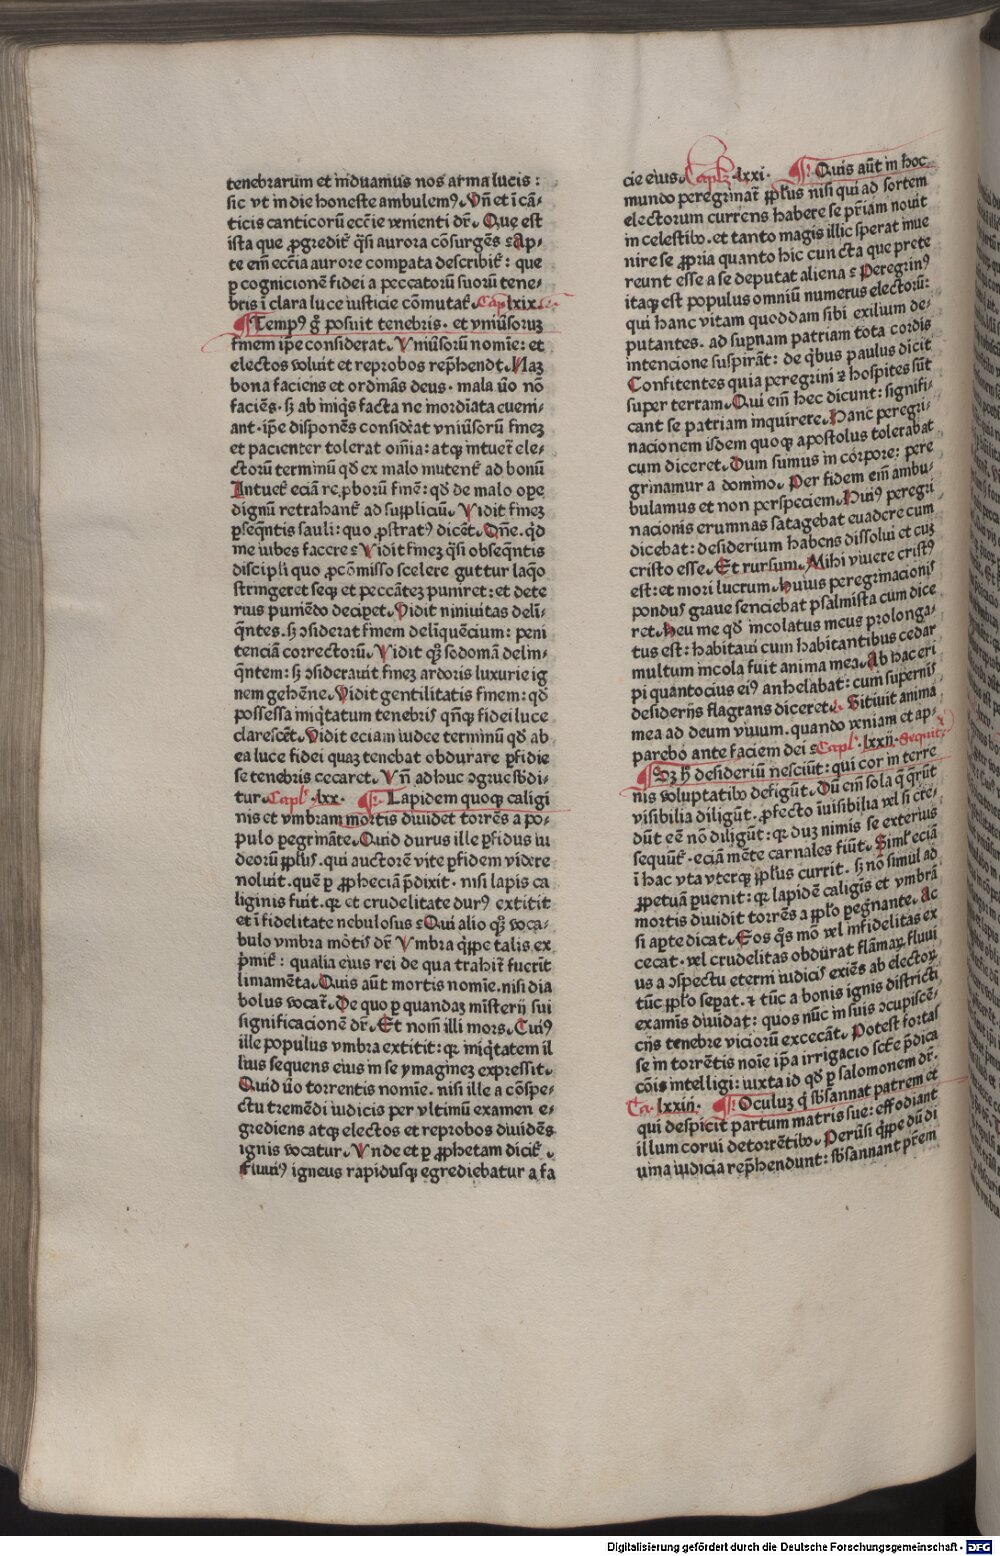 tenebrarum et induamus nos arma lucis :
sic vt in die honeste ambulemꝰ. Vñ et ī cā-
ticis canticorū eccīe venienti dr̄. Que est
ista que ꝓgredit᷑ q̄si aurora cōsurgēs? Ap-
te em̄ eccīa aurore comp̲ata describit᷑ : que
p̲ cognicionē fidei a peccatorū suorū tene-
bris ī clara luce iusticie cōmutat᷑. Cap. lxix.
Tempꝰ g̊ posuit tenebris. et vniūsoruꝫ
finem ip̄e considerat. Vniūsorū nomīe: et
electos voluit et reprobos rep̄hendt. Naꝫ
bona faciens et ordinās deus. mala ūo nō
faciēs. sꝫ ab iniq̄s facta ne inordīata eueni-
ant. ip̄e disponēs considēat vniūsorū finēꝫ
et pacienter tolerat om̄ia: atqꝫ intuet᷑ ele-
ctorū terminū qd̄ ex malo mutent᷑ ad bonū
Intuet᷑ eciā re.p̲borū finē: qd̄ de malo ope
dignū retrahant᷑ ad suppliciū. Vidit finēꝫ
p̲seq̄ntis sauli: quo ꝓstratꝰ dicēt. Dn̄e. qd̄
me iubes facere? Vidit finēꝫ q̄si obseq̄ntis
discipli quo ꝓ cōmisso scelere guttur laq̊o
stringeret seqꝫ et peccātēꝫ puniret: et dete
rius puniēdo decip̲et. Vidit niniuitas deli-
q̄ntes. sꝫ ↄsiderat finem deliquēcium: peni
tenciā correctorū. Vidit qꝫ sodomā delin-
q̄ntem: sꝫ ↄsiderauit finēꝫ ardoris luxurie ig
nem gehēne. Vidit gentilitatis finem: qd̄
possessa iniq̄tatum tenebris qn̄qꝫ fidei luce
clarescēt. Vidit eciam iudee terminū qd̄ ab
ea luce fidei quaꝫ tenebat obdurare p̲fidie
se tenebris cecaret. Vn̄ adhuc ↄgrue sb̄di-
tur. Capl̄. lxx. Lapidem quoqꝫ caligi
nis et vmbram mortis diuidet torrēs a po-
pulo p̲egrināte. Quid durus ille p̲fidus iu
deorū pp̄l̄us. qui auctorē vite p̲ fidem videre
noluit. quē p̲ ꝓpheciā p̄dixit. nisi lapis ca
liginis fuit. qꝛ et crudelitate durꝰ extitit
et ī fidelitate nebulosus? Qui alio qꝫ voca-
bulo vmbra mōtis dr̄. Vmbra q̄ippe talis ex
p̄mit᷑ : qualia eius rei de qua trahit᷑ fuerīt
limamēta. Quis aūt mortis nomīe. nisi dia
bolus vocat᷑. De quo p̲ quandaꝫ mīsterij sui
significacionē dr̄. Et nom̄ illi mors. Cuiꝰ
ille populus vmbra extitit: qꝛ iniq̄tatem il
lius sequens eius in se ymagineꝫ expressit.
Quid ūo torrentis nomīe. nisi ille a cōspe-
ctu tremēdi iudicis per vltimū examen e-
grediens atqꝫ electos et reprobos diuidēs
ignis vocatur. Vnde et p̲ ꝓphetam dicit᷑.
Fluuiꝰ igneus rapidusqꝫ egrediebatur a fa
cie eius. Caplꝫ. lxxi. Quis aūt in hoc
mundo peregrinat᷑ pp̄l̄us nisi qui ad sortem
electorum currens habere se pr̄iam nouit
in celestibꝰ. et tanto magis illic sperat inue
nire se ꝓpria quanto hic cuncta que prete
reunt esse a se deputat aliena? Peregrinꝰ
itaqꝫ est populus omniū numerus electorū:
qui hanc vitam quoddam sibi exilium de-
putantes. ad sup̲nam patriam tota cordis
intencione suspirāt: de q̄bus paulus dicit
Confitentes quia peregrini ⁊ hospites sūt
super terram. Qui em̄ hec dicunt: signifi-
cant se patriam inquirere. Hanc peregri-
nacionem isdem quoqꝫ apostolus tolerabat
cum diceret. Dum sumus in corpore: pere
grinamur a domino. Per fidem em̄ ambu-
bulamus et non perspeciem. Huiꝰ peregri
nacionis erumnas satagebat euadere cum
dicebat: desiderium habens dissolui et cuꝫ
cristo esse. Et rursum. Mihi viuere cristꝰ
est: et mori lucrum. Huius peregrinacionis
pondus graue senciebat psalmista cum dice
ret. Heu me qd̄ incolatus meus prolonga-
tus est: habitaui cum habitantibus cedar
multum incola fuit anima mea. Ab hac eri
pi quantocius eiꝰ anhelabat: cum supernis
desiderijs flagrans diceret. Sitiuit anima
mea ad deum viuum. quando veniam et ap-
parebo ante faciem dei? Capl̄. lxxij. Sequit᷑
Sꝫ h̄ desideriū nesciūt: qui cor in terre
nis voluptatibꝰ defigūt. Dū em̄ sola q̄ q̄rūt
visibilia diligūt. ꝓfecto īuisibilia vel si cre-
dūt eē nō diligūt: qꝛ duꝫ nimis se exterius
sequūt᷑. eciā mēte carnales fiūt. Simil̄ eciā
ī hac vita vterqꝫ pp̄l̄us currit. sꝫ nō simul ad
ꝓpetuā p̲uenit: qꝛ lapidē caligīs et vmbrā
mortis diuidit torrēs a pp̄l̊o p̲egnante. Ac
si ap̲te dicat. Eos q̊s mō vel infidelitas ex
cecat. vel crudelitas obdurat flāmaꝝ fluui
us a ↄspectu eterni iudicis exiēs ab electoꝝ
tūc pp̄l̊o sep̲at. ⁊ tūc a bonis ignis districti
examīs diuidat: quos nūc in suis ↄcupiscē-
cijs tenebre viciorū excecāt. Potest fortas
se in torrētis noīe ip̄a irrigacio sct̄e p̄dica
cōis intelligi: iuxta id qd̄ p̲ salomonem dr̄.
Ca. lxxiij. Oculuꝫ q̄ sb̄sannat patrem et
qui despicit partum matris sue: effodiant
illum corui detorrētibꝰ. Perūsi q̄ippe dū di
uina iudicia rep̄hendunt: sb̄sannant pr̄em
Digitalisierung gefördert durch die Deutsche Forschungsgemeinschaft - DFG